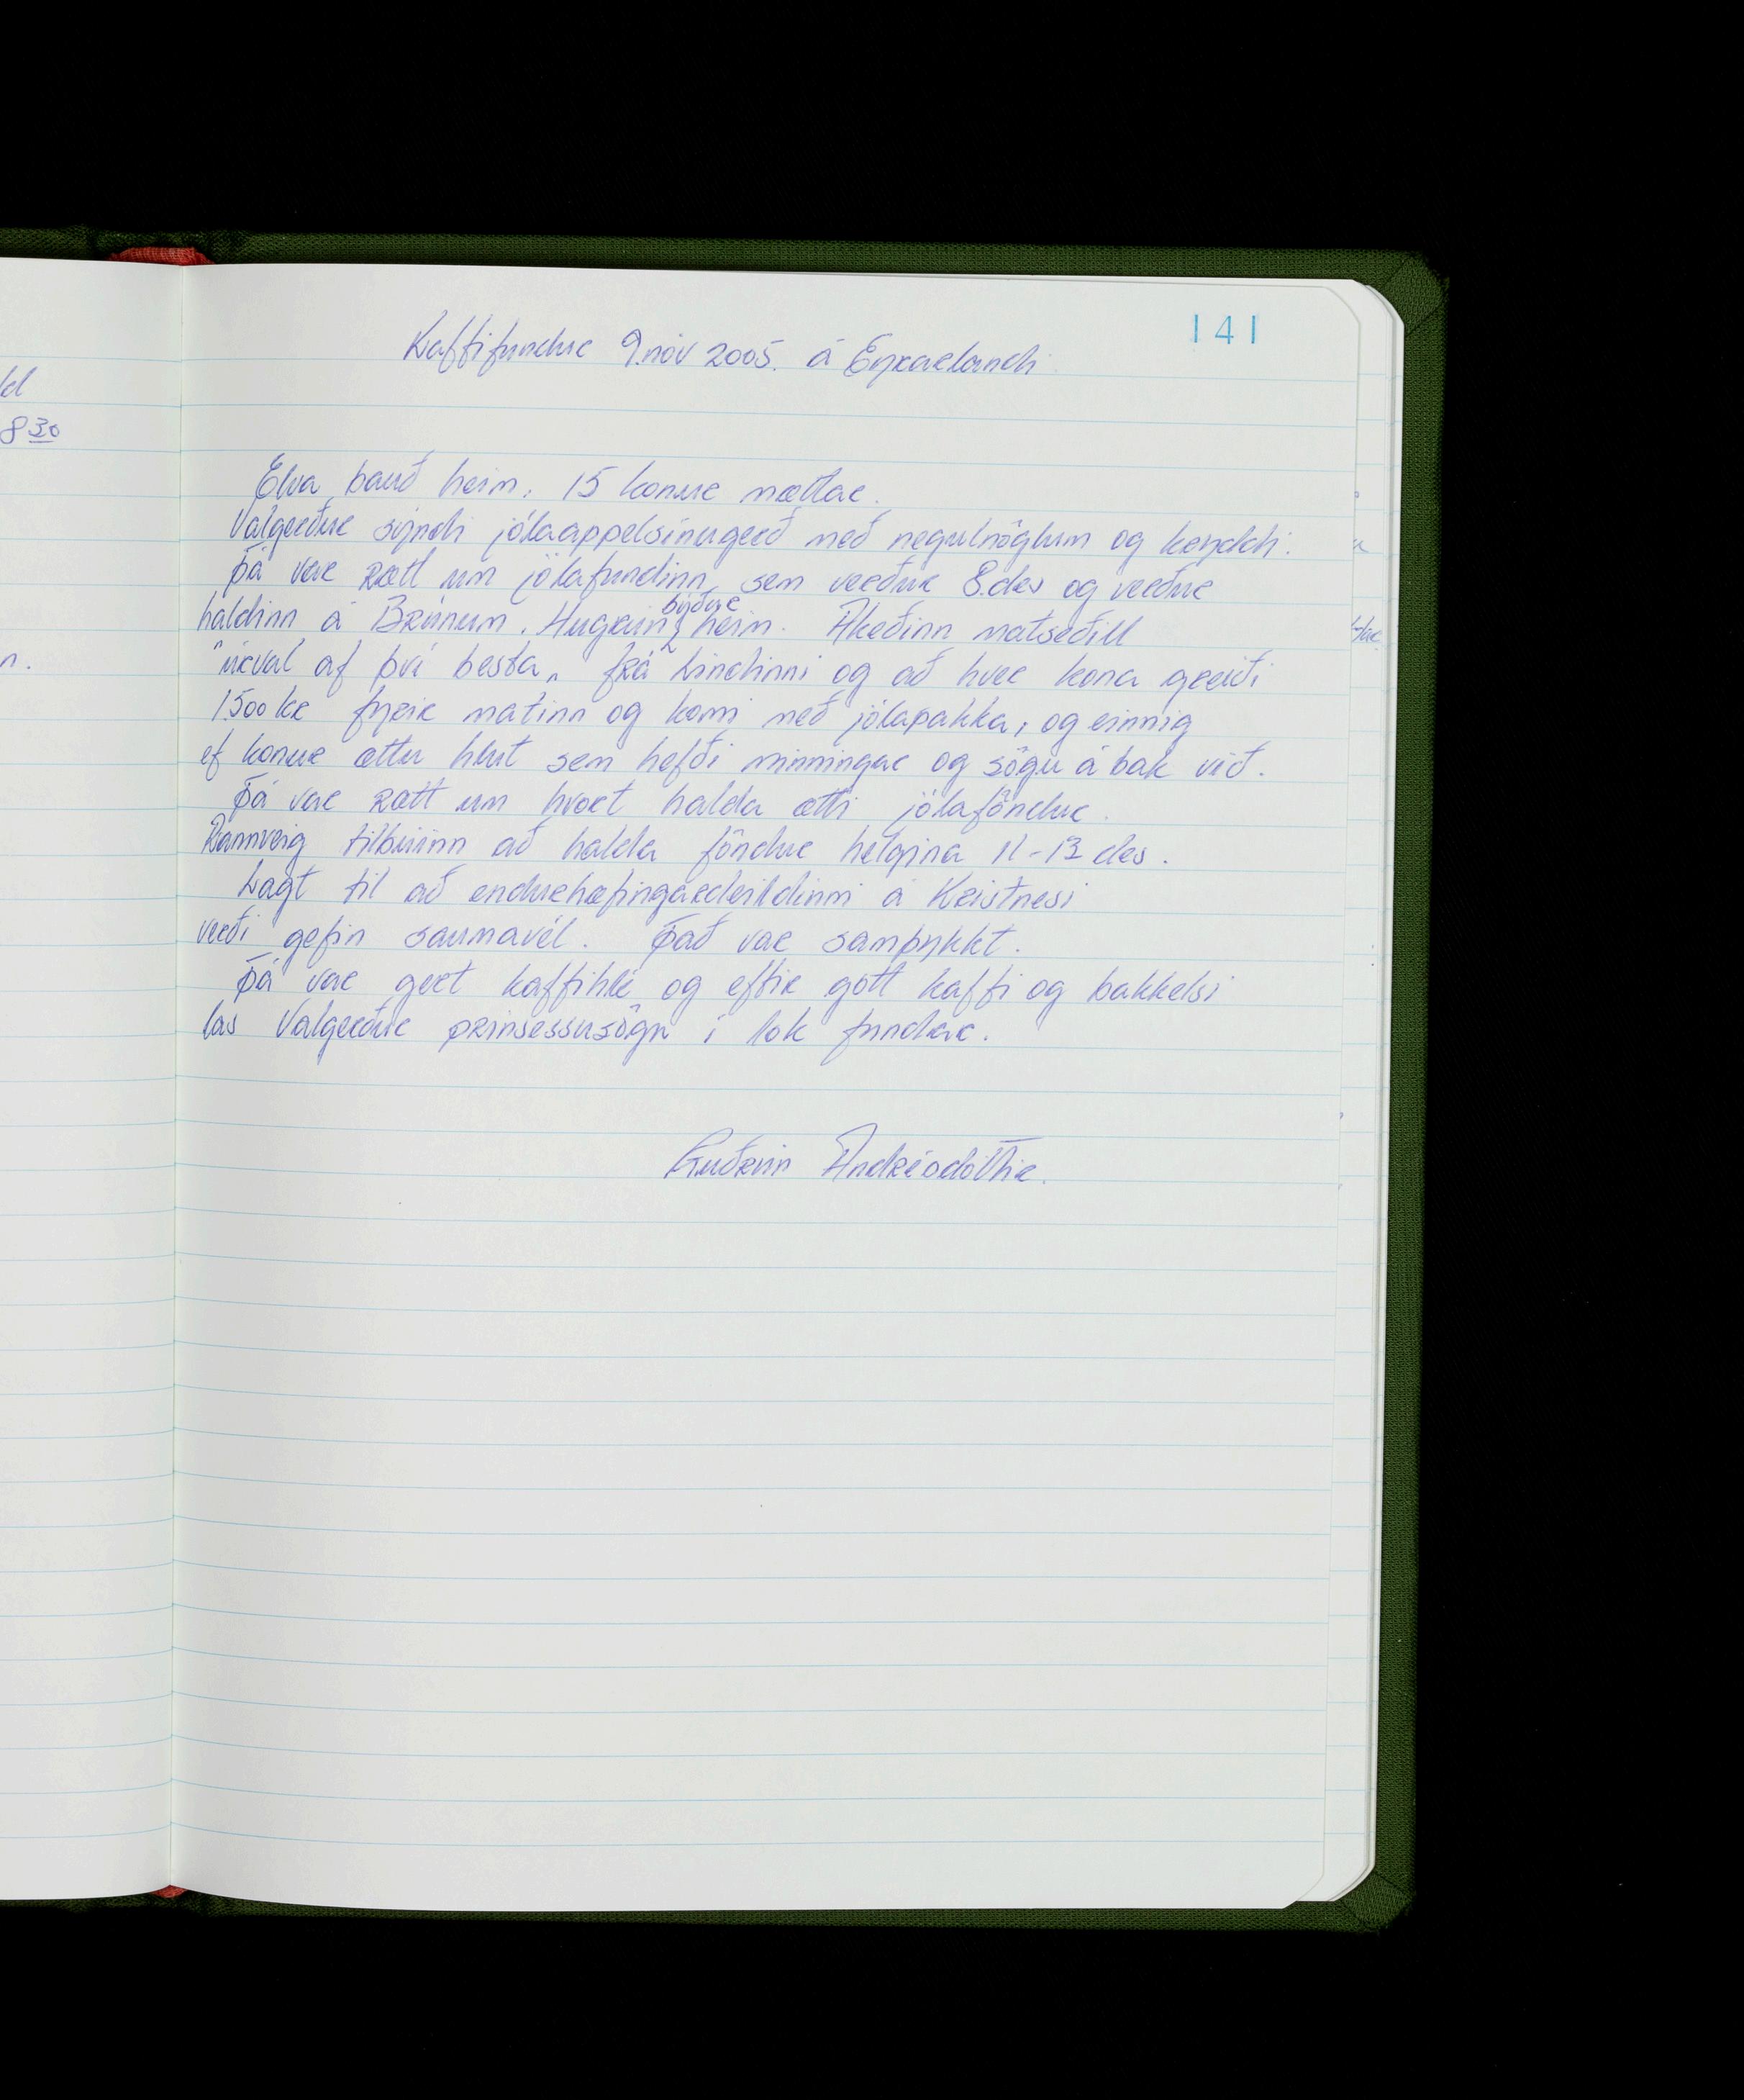 141
Kaffifundur 9.nóv 2005. á Eyrarlandi
ld
8 30
Elva bauð heim. 15 konur mættar.
Valgerður sýndi jólaappelsínugerð með negulnöglum og kryddi.
Þá var rætt um jólafundinn, sem verður 8.des og verður
haldinn á Brúnum. Hugrún býður heim. Ákeðinn matseðill
"úrval af því besta„ frá Lindinni og að hver kona greiði
1500 kr fyrir matinn og komi með jólapakka, og einnig
ef konur ættu hlut sem hefði minningar og sögu á bak við.
Þá var rætt um hvort halda ætti jólaföndur.
Rannveig tilbúinn að halda föndur helgina 11-13 des.
n.
Lagt til að endurhæfingardeildinni á Kristnesi
verði gefin saumavél. Það var samþykkt.
Þá var gert kaffihlé og eftir gott kaffi og bakkelsi
las Valgerður prinsessusögu í lok fundar.
Guðrún Andrésdóttir.